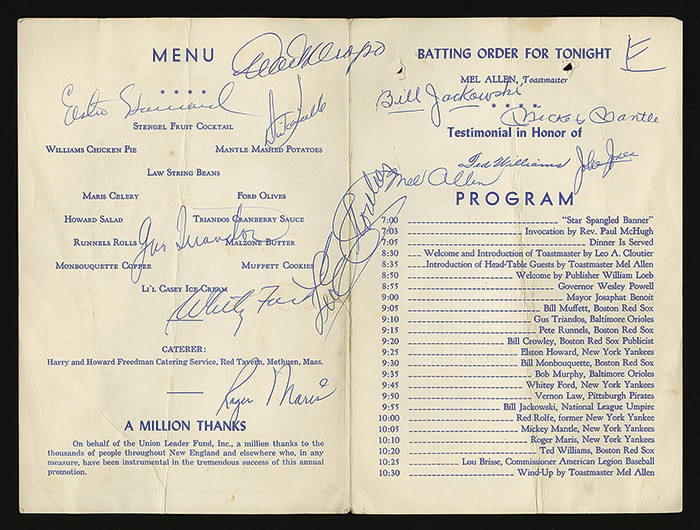 MENU
Elston Howard
STENGEL FRUIT COCKTAIL
WILLIAMS CHICKEN PIE
MANTLE MASHED POTATOES
LAW STRING BEANS
MARIS CELERY
FORD OLIVES
HOWARD SALAD
TRIANDOS CRANBERRY SAUCE
Gus Triandos
RUNNELS ROLLS
MALZONE BUTTER
MONBOUQUETTE COFFEE
MUFFETT COOKIES
LI'L CASEY ICE CREAM
Whitey Ford
CATERER:
Harry and Howard Freedman Catering Service, Red Tavern, Methuen, Mass.
Roger Maris
A MILLION THANKS
On behalf of the Union Leader Fund, Inc., a million thanks to the
thousands of people throughout New England and elsewhere who, in any
measure, have been instrumental in the tremendous success of this annual
promotion.
BATTING ORDER FOR TONIGHT
E
MEL ALLEN, Toastmaster
Bill Jackowski
Mickey Mantle
Testimonial in Honor of
Ted Williams
Mel Allen
PROGRAM
7:00 "Star Spangled Banner"
7:03 Invocation by Rev. Paul McHugh
7:05 Dinner Is Served
8:30 Welcome and Introduction of Toastmaster by Leo A. Cloutier
8:35 Introduction of Head-Table Guests by Toastmaster Mel Allen
8:50 Welcome by Publisher William Loeb
8:55 Governor Wesley Powell
9:00 Mayor Josaphat Benoit
9:05 Bill Muffett, Boston Red Sox
9:10 Gus Triandos, Baltimore Orioles
9:15 Pete Runnels, Boston Red Sox
9:20 Bill Crowley, Boston Red Sox Publicist
9:25 Elston Howard, New York Yankees
9:30 Bill Monbouquette, Boston Red Sox
9:35 Bob Murphy, Baltimore Orioles
9:45 Whitey Ford, New York Yankees
9:50 Vernon Law, Pittsburgh Pirates
9:55 Bill Jackowski, National League Umpire
10:00 Red Rolfe, former New York Yankee
10:05 Mickey Mantle, New York Yankees
10:10 Roger Maris, New York Yankees
10:20 Ted Williams, Boston Red Sox
10:25 Lou Brisse, Commissioner American Legion Baseball
10:30 Wind-Up by Toastmaster Mel Allen